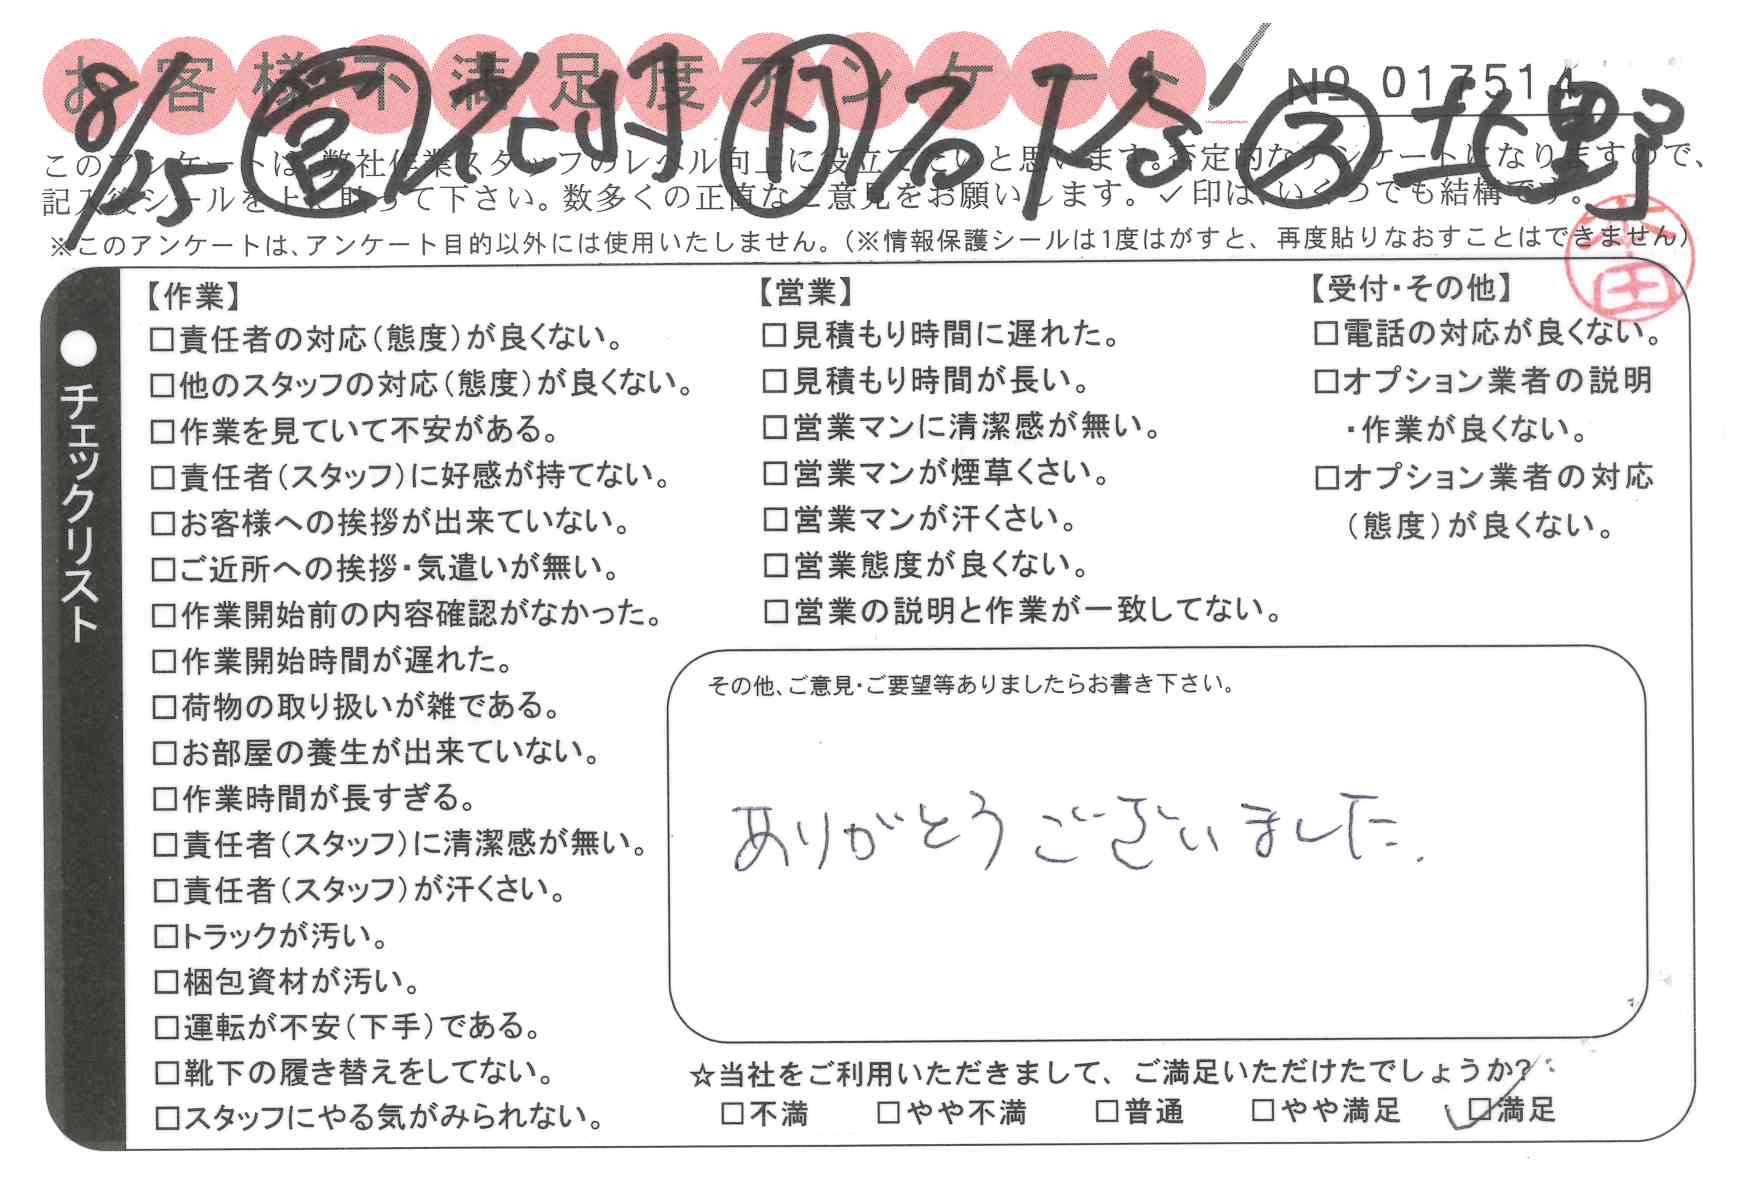 お客様不満足度アンケート
№ 017514
8/15 営 花村 作 名下谷 ス 北野
このアンケートは、弊社作業スタッフのレベル向上に役立てたいと思います。否定的なアンケートになりますので、
記入後シールを上に貼って下さい。数多くの正直なご意見をお願いします。✓印は、いくつでも結構です。
※このアンケートは、アンケート目的以外には使用いたしません。（※情報保護シールは1度はがすと、再度貼りなおすことはできません）
●チェックリスト
【作業】
□責任者の対応（態度）が良くない。
□他のスタッフの対応（態度）が良くない。
□作業を見ていて不安がある。
□責任者（スタッフ）に好感が持てない。
□お客様への挨拶が出来ていない。
□ご近所への挨拶・気遣いが無い。
□作業開始前の内容確認がなかった。
□作業開始時間が遅れた。
□荷物の取り扱いが雑である。
□お部屋の養生が出来ていない。
□作業時間が長すぎる。
□責任者（スタッフ）に清潔感が無い。
□責任者（スタッフ）が汗くさい。
□トラックが汚い。
□梱包資材が汚い。
□運転が不安（下手）である。
□靴下の履き替えをしてない。
□スタッフにやる気がみられない。
【営業】
□見積もり時間に遅れた。
□見積もり時間が長い。
□営業マンに清潔感が無い。
□営業マンが煙草くさい。
□営業マンが汗くさい。
□営業態度が良くない。
□営業の説明と作業が一致してない。
【受付・その他】
□電話の対応が良くない。
□オプション業者の説明
・作業が良くない。
□オプション業者の対応
（態度）が良くない。
その他、ご意見・ご要望等ありましたらお書き下さい。
ありがとうございました.
☆当社をご利用いただきまして、ご満足いただけたでしょうか?
□不満 □やや不満 □普通 □やや満足 ☑満足